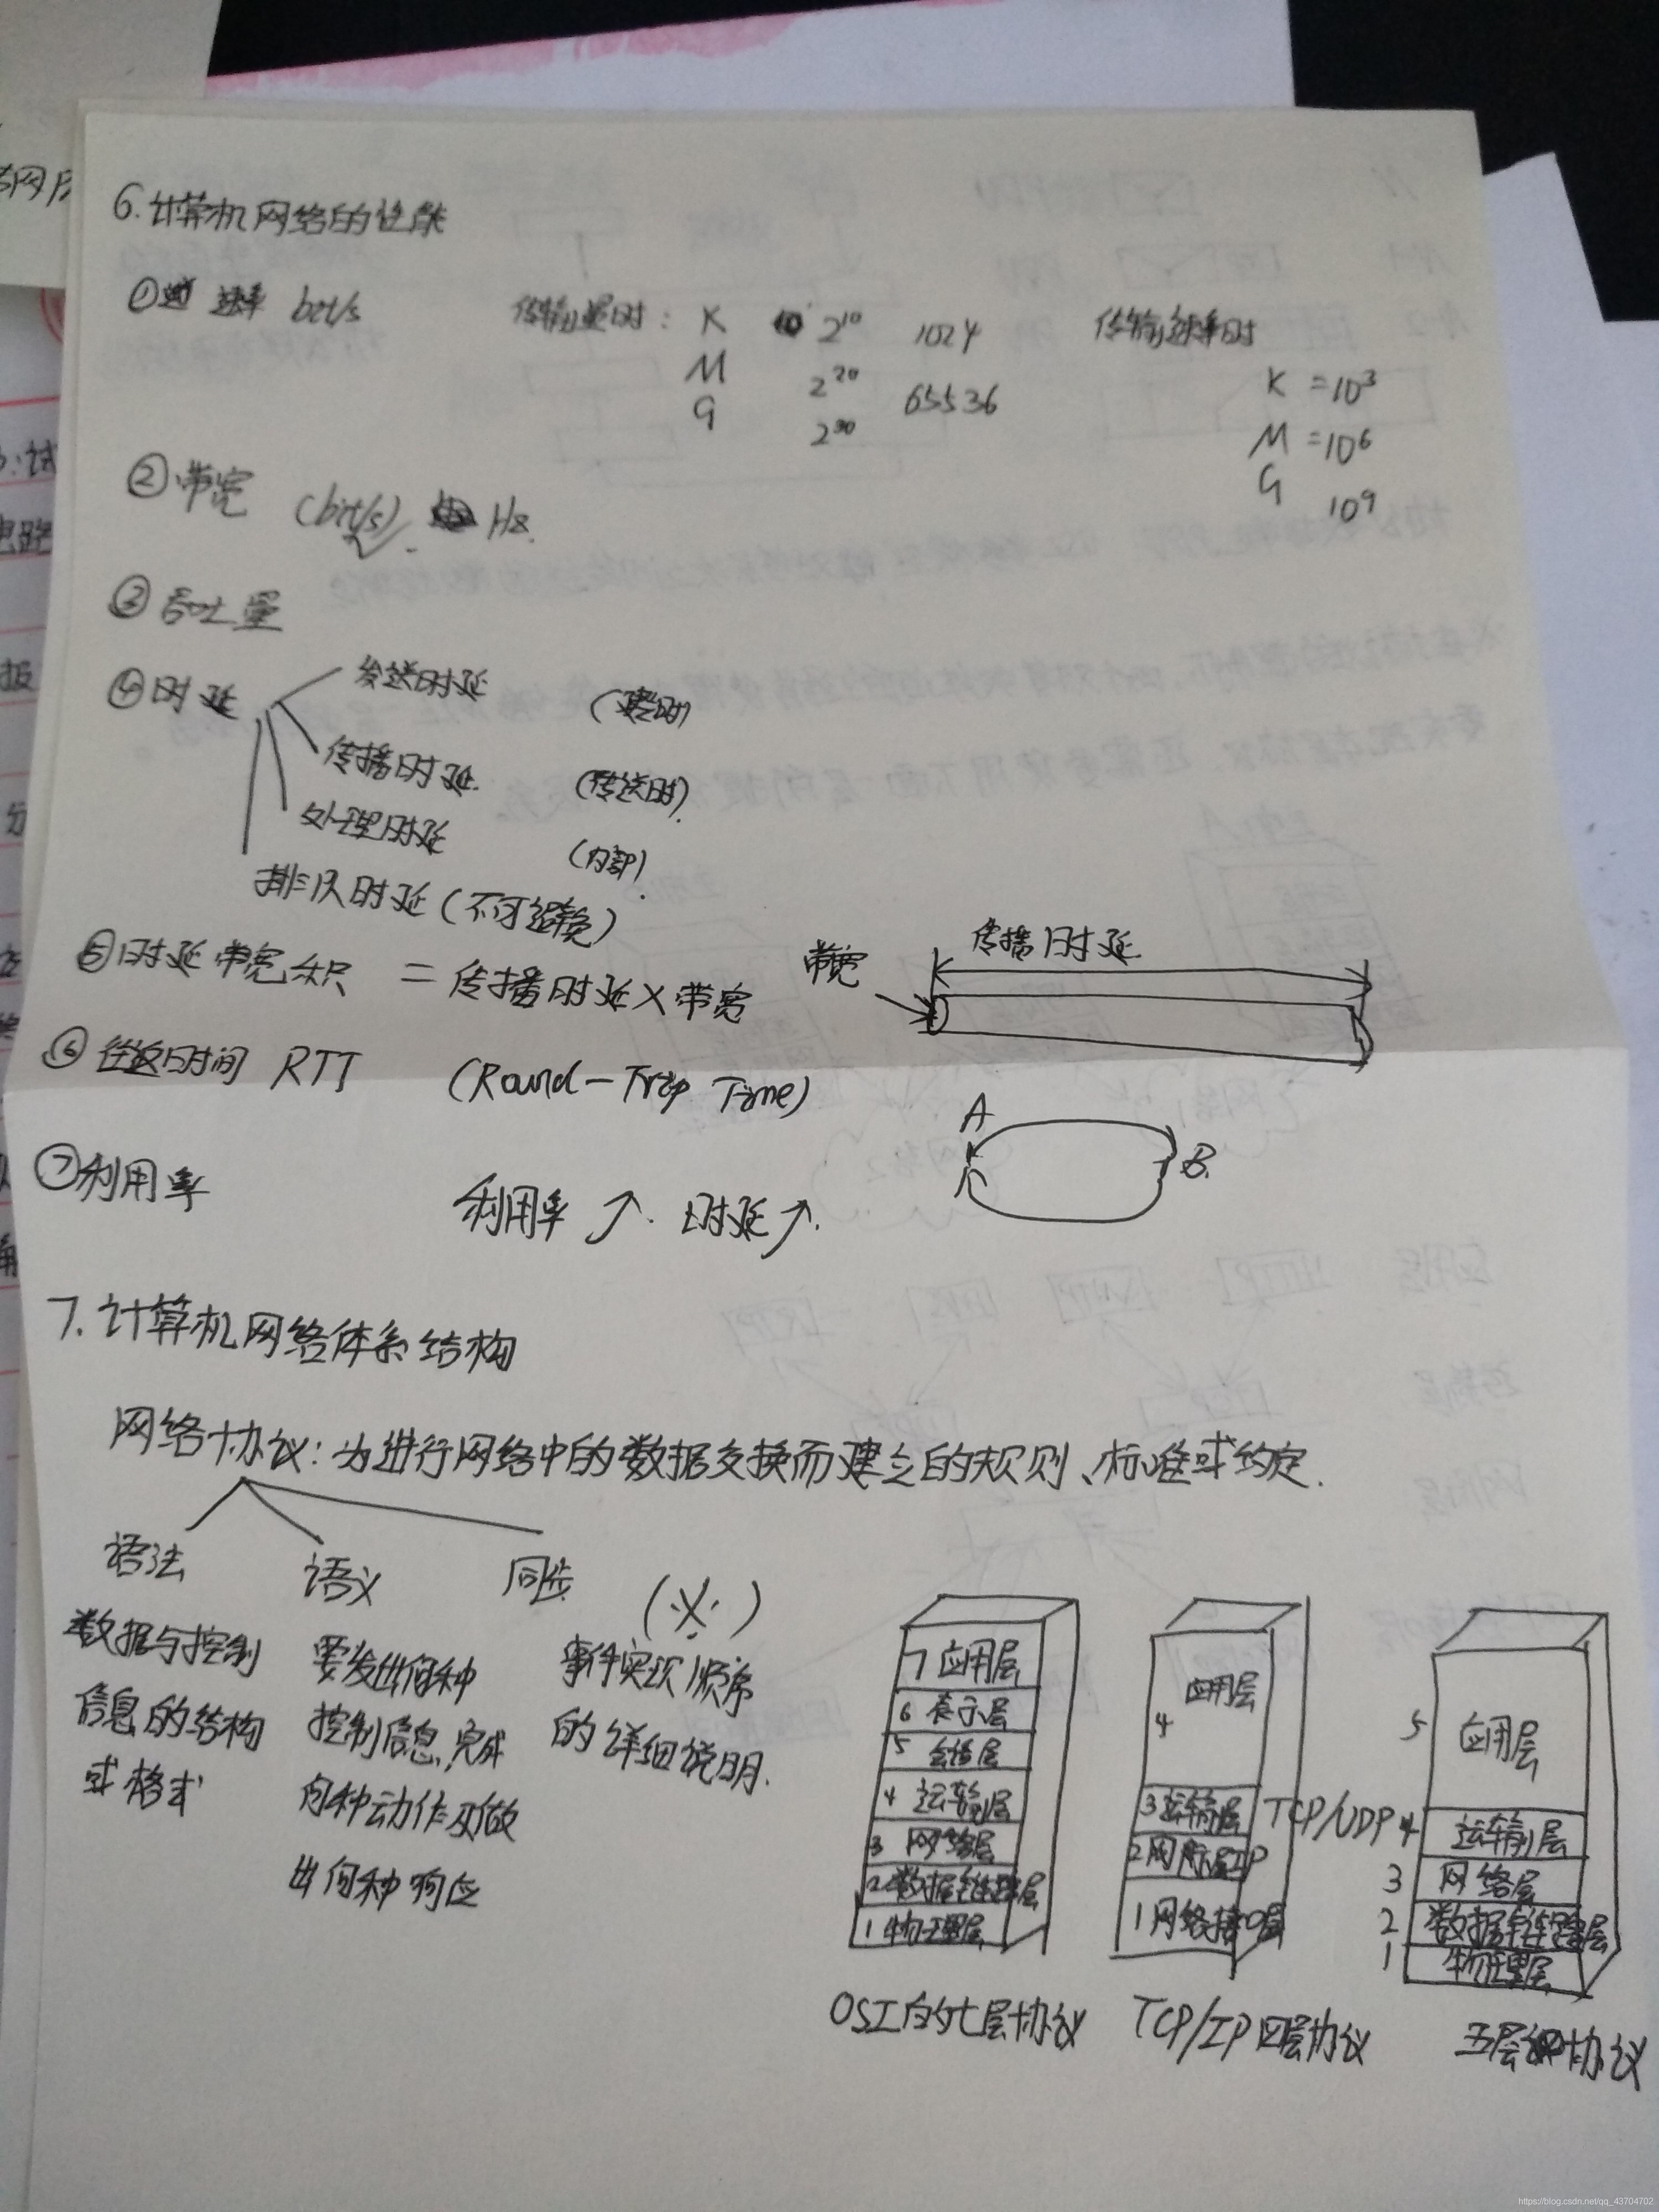 6.计算机网络的性能
① 速率 bit/s 传输量时: K 2^10 1024 传输速率时
M 2^20 65536 K =10^3
G 2^30 M =10^6
G 10^9
②带宽 (bit/s) Hz.
③吞吐量
④时延 发送时延
传播时延 (传送时)
处理时延 (内部)
排队时延(不可避免)
⑤时延带宽积 = 传播时延×带宽 带宽 传播时延
⑥往返时间 RTT (Round-Trip Time)
A
B.
⑦利用率 利用率↗. 时延↗.
7.计算机网络体系结构
网络协议:为进行网络中的数据交换而建立的规则、标准或约定.
语法 语义 同步 (※)
数据与控制
信息的结构
或格式
要发出何种
控制信息,完成
何种动作及做
出何种响应
事件实现顺序
的详细说明.
7 应用层
6 表示层
5 会话层
4 运输层
3 网络层
2 数据链路层
1 物理层
OSI的七层协议
4 应用层
3 运输层 TCP/UDP
2 网际层IP
1 网络接口层
TCP/IP四层协议
5 应用层
4 运输层
3 网络层
2 数据链路层
1 物理层
五层协议
https://blog.csdn.net/qq_43704702